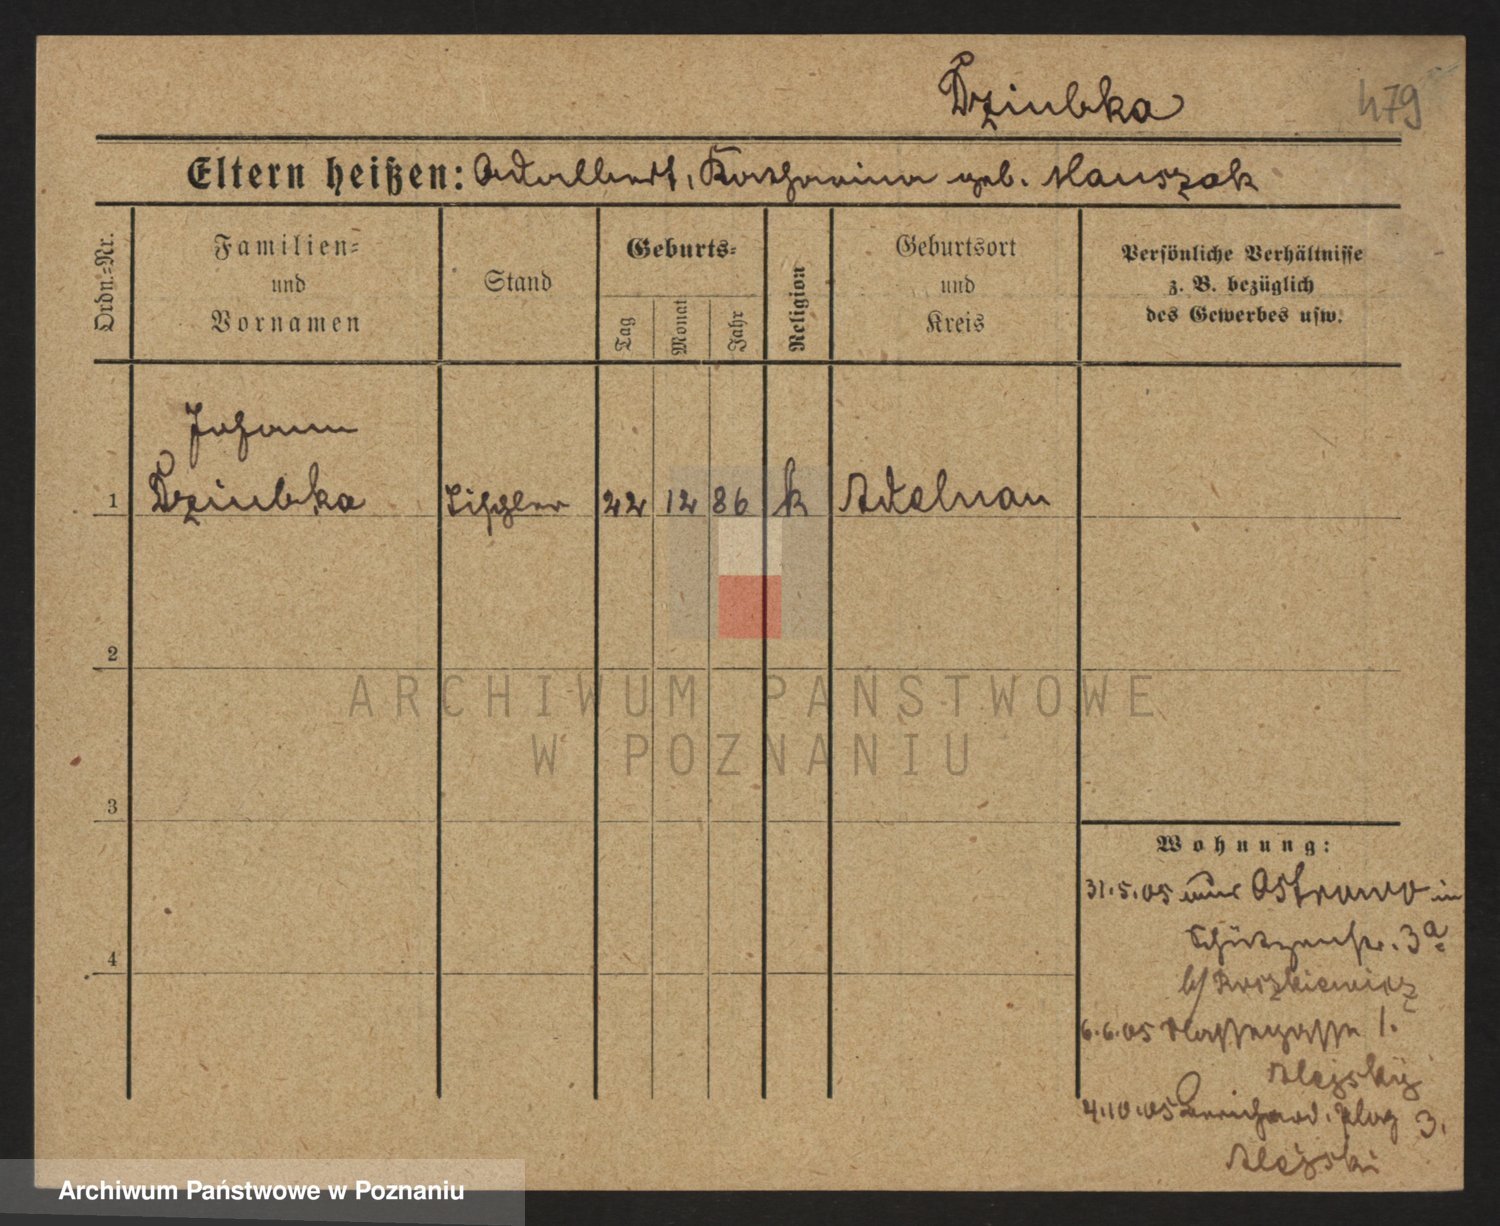 Dziubka
479
Eltern heißen: Adalbert, Katharina geb. Mauszak
Ordn.=Nr.
Familien=
und
Vornamen
Stand
Geburts=
Tag
Monat
Jahr
Religion
Geburtsort
und
Kreis
Persönliche Verhältnisse
z. B. bezüglich
des Gewerbes usw.
Johann
1 Dziubka Tischler 22 12 86 k Adelnau
2
3
4
Wohnung:
31.5.05 aus Ostrowo in
Schützenstr. 3a
b/ Roszkiewicz
6.6.05 1.
4.10.05 3.
ARCHIWUM PAŃSTWOWE
W POZNANIU
Archiwum Państwowe w Poznaniu